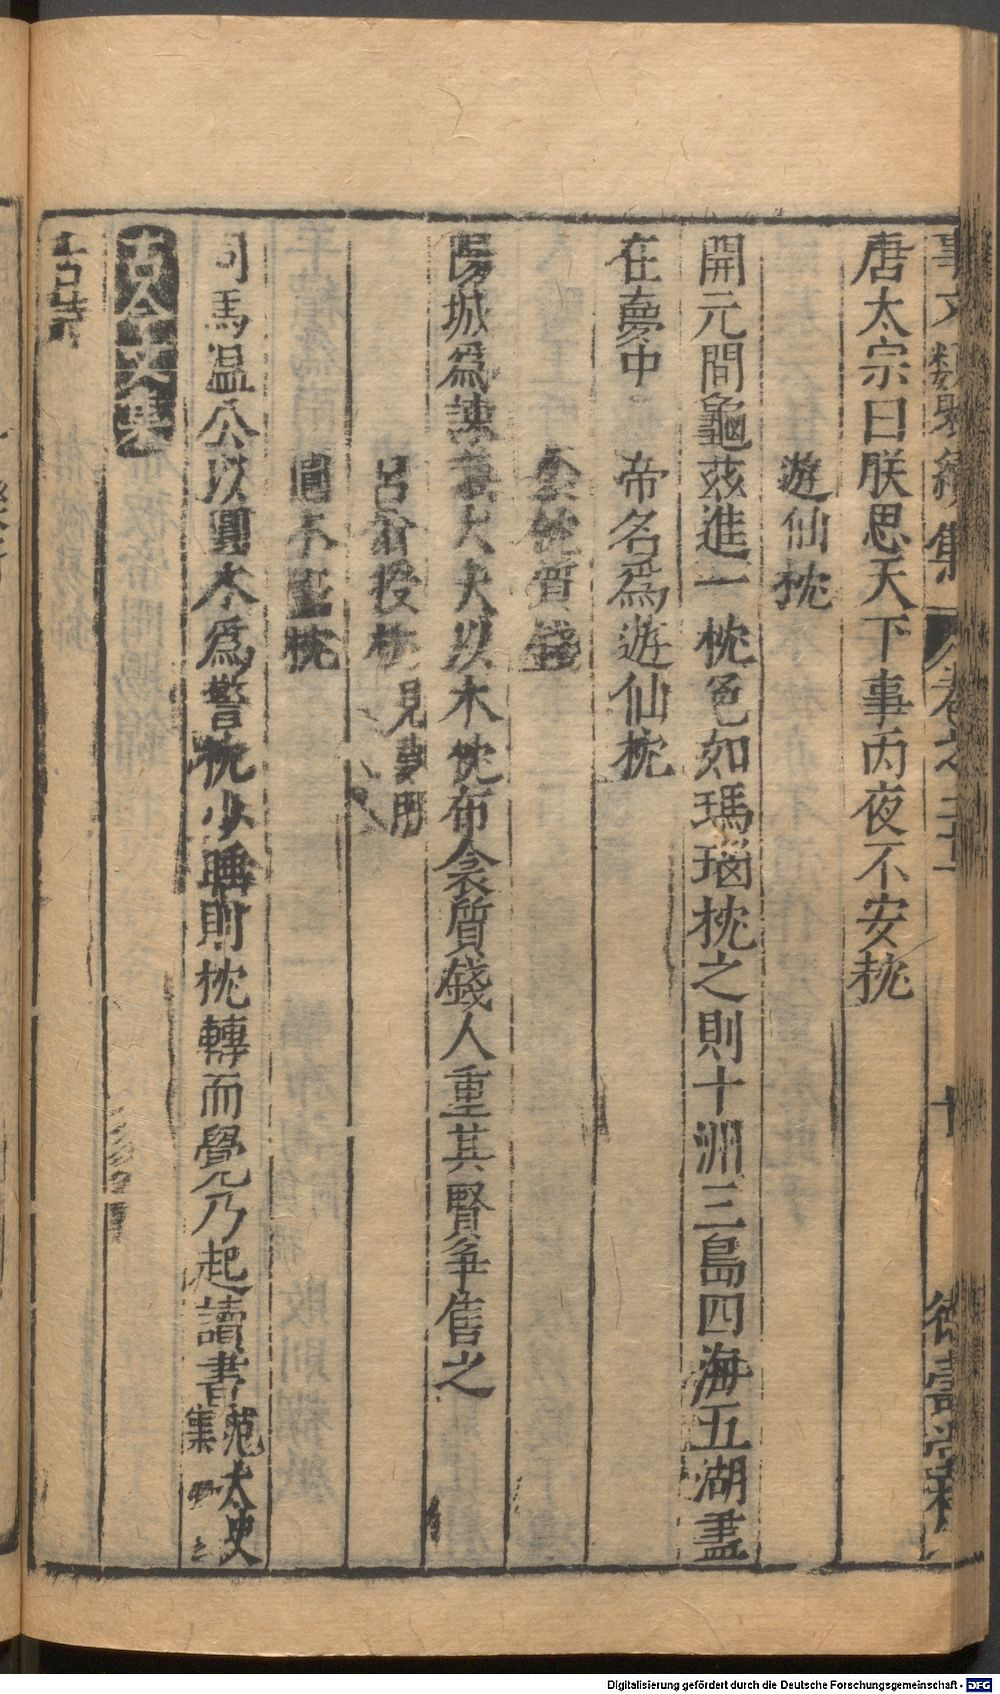 事文類聚續集 卷之 十 德壽堂梓
唐太宗曰朕思天下事丙夜不安枕
遊仙枕
開元間龜茲進一枕色如瑪瑙枕之則十洲三島四海五湖盡
在夢中 帝名爲遊仙枕
金枕質錢
陽城爲諫議大夫以木枕布衾質錢人重其賢爭售之
呂翁授枕 見夢門
圓木警枕
司馬温公以圓木爲警枕少睡則枕轉而覺乃起讀書 范太史集
古今文集
古詩
Digitalisierung gefördert durch die Deutsche Forschungsgemeinschaft - DFG